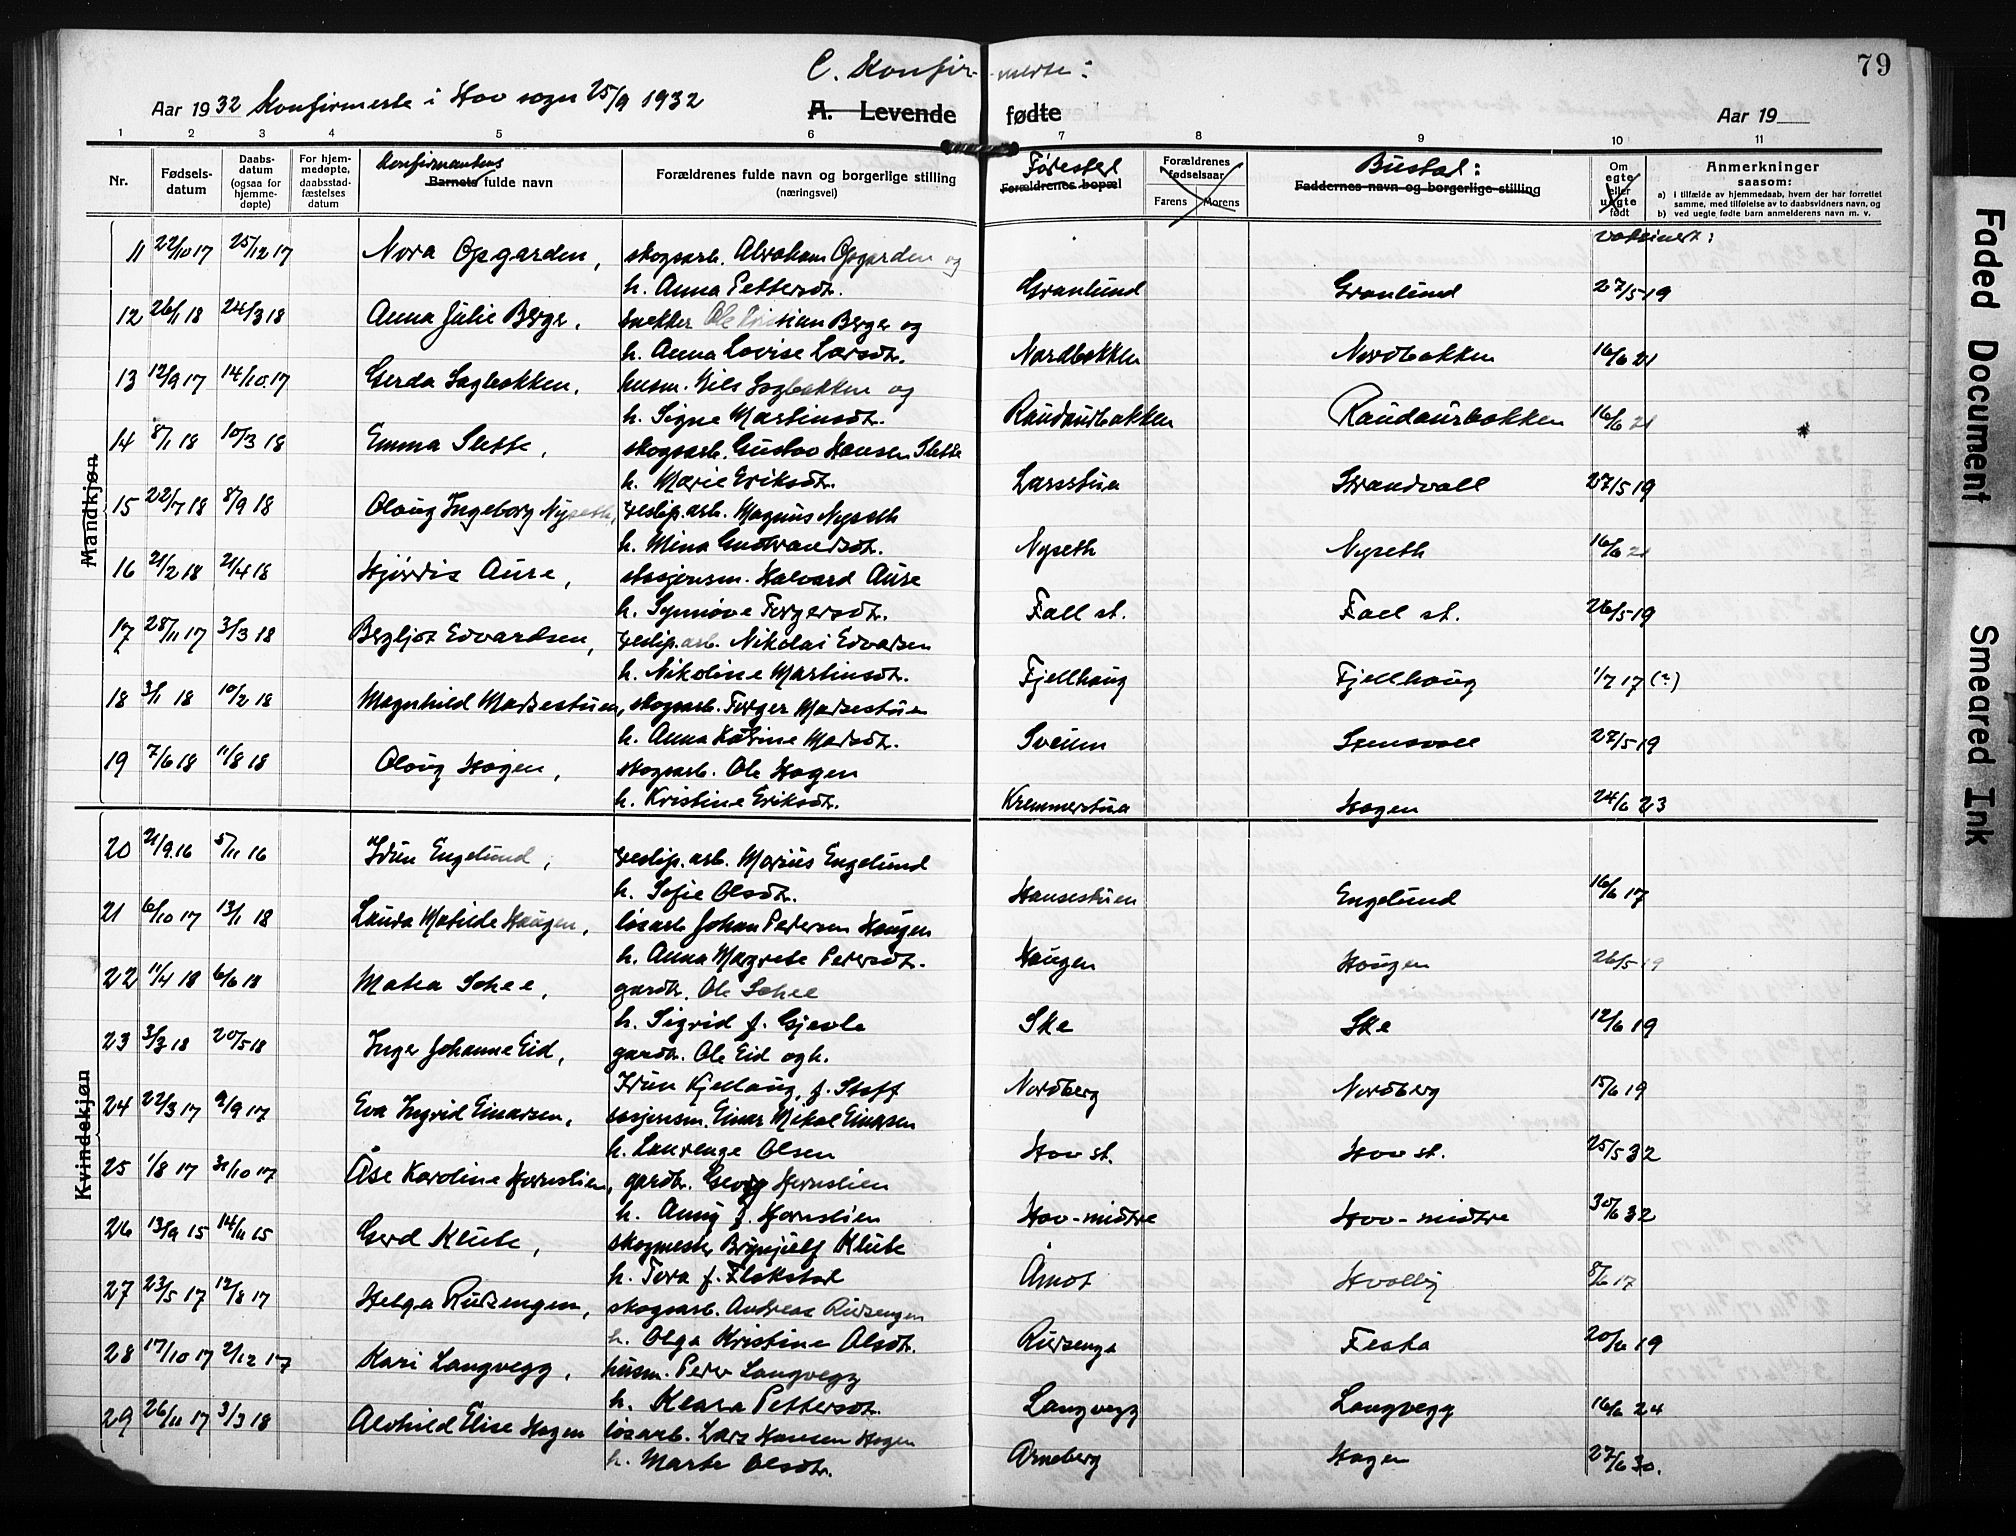 79
C. Konfir- merte:
Aar 1932 Konfirmerte i Hov sogn 25/9 1932
A. Levende fødte
Aar 19
1 2 3 4 5 6 7 8 9 10 11
Nr. Fødsels-datum Daabs-datum (ogsaa for hjemme-døpte) For hjem-medøpte, daabsstad-fæstelses datum Konfirmantens Barnets fulde navn Forældrenes fulde navn og borgerlige stilling (næringsvei) Fødested Forældrenes bopæl Forældrenes fødselsaar Farens Morens Bustad: Faddernes navn og borgerlige stilling Om egte eller uegte født Anmerkninger saasom:
a) i tilfælde av hjemmedaab, hvem der har forrettet samme, med tilføielse av to daabsvidners navn, og
b) ved uegte fødte barn anmelderens navn m. v.
vaksinert:
Mandkjøn
11 22/10 17 25/12 17 Nora Opgarden, skogsarb. Abraham Opgarden og
h. Anna Pettersdtr. Granlund Granlund 27/5 19
12 26/1 18 24/3 18 Anna Julie Berger, snekker Ole Kristian Berger og
h. Anna Lovise Larsdtr. Nordbakken Nordbakken 16/6 21
13 12/9 17 14/10 17 Gerda Sagbakken, husm. Nils Sagbakken og
h. Signe Martinsdtr. Raudaurbakken Raudaurbakken 16/6 21
14 8/1 18 10/3 18 Emma Slette, skogsarb. Gustav Hansen Slette
h. Marie Eriksdtr. Larsstua Strandvall 27/5 19
15 22/7 18 8/9 18 Olaug Ingeborg Nyseth, treslip.arb. Magnus Nyseth
h. Mina Gudbrandsdtr. Nyseth Nyseth 16/6 21
16 21/2 18 21/4 18 Hjørdis Aure, stasjonsm. Halvard Aure
h. Synnøve Torgersdtr. Fall st. Fall st. 26/5 19
17 28/11 17 3/3 18 Bergljot Edvardsen, treslip.arb. Nikolai Edvarsen
h. Nikoline Martinsdtr. Fjellhaug Fjellhaug 1/7 17 (?)
18 3/1 18 10/2 18 Magnhild Madsestuen, skogsarb. Torger Madsestuen
h. Anna Katrine Madsdtr. Sveum Stensvoll 27/5 19
19 7/6 18 11/8 18 Olaug Hagen, skogsarb. Ole Hagen
h. Kristine Eriksdtr. Kremmerstua Hagen 24/6 23
Kvindekjøn
20 21/9 16 5/11 16 Idun Engelund, treslip.arb. Marius Engelund
h. Sofie Olsdtr. Hansestuen Engelund 16/6 17
21 6/10 17 13/1 18 Laura Matilde Haugen, løsarb. Johan Petersen Haugen
h. Anna Margrete Petersdtr. Haugen Haugen 26/5 19
22 11/4 18 6/6 18 Matea Schee, gardbr. Ole Schee
h. Sigrid f. Gjevle Ske Ske 12/6 19
23 3/3 18 20/5 18 Inger Johanne Eid, gardbr. Ole Eid og h.
Idun Kjellaug, f. Staff Nordberg Nordberg 15/6 19
24 22/3 17 9/9 17 Eva Ingrid Einarsen, stasjonsm. Einar Mikal Einarsen
h. Laurenze Olsen Hov st. Hov st. 25/5 32
25 1/8 17 31/10 17 Åse Karoline Hornslien, gardbr. Georg Hornslien
h. Anny f. Hornslien Hov-midtre Hov-midtre 30/6 32
26 13/9 15 14/11 15 Gerd Klute, skogmester Brynjulf Klute
h. Tora f. Flakstad Åmot Hvalby 8/6 17
27 23/5 17 12/8 17 Helga Rudsengen, skogsarb. Andreas Rudsengen
h. Olga Kristine Olsdtr. Rudsenga Festa 20/6 19
28 17/10 17 2/12 17 Kari Langvegg, husm. Peder Langvegg
h. Klara Pettersdtr. Langvegg Langvegg 16/6 24
29 26/11 17 3/3 18 Alvhild Elise Hagen løsarb. Lars Hansen Hagen
h. Marte Olsdtr. Arneberg Hagen 27/6 30.
Faded Document
Smeared Ink